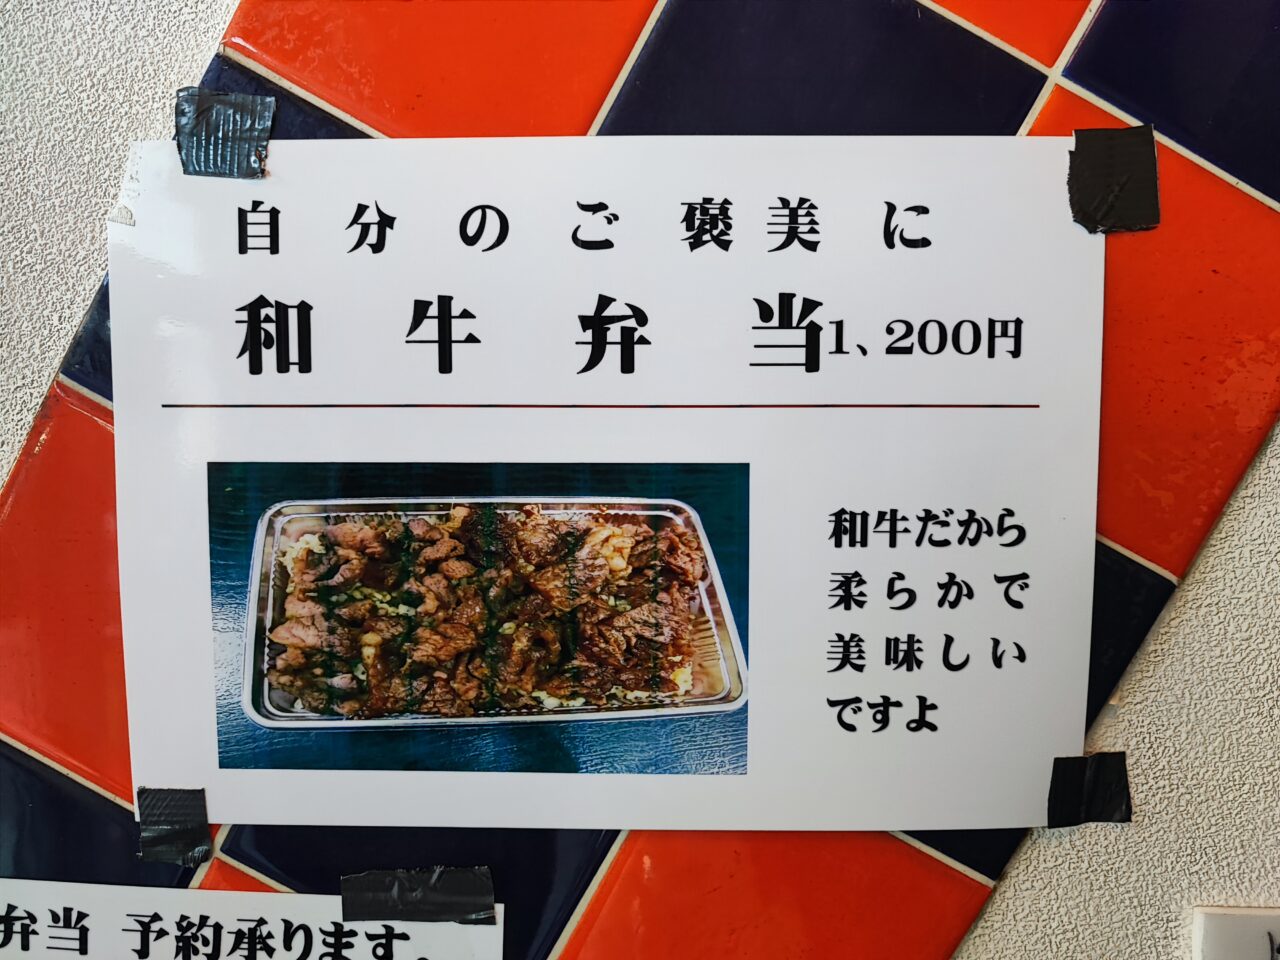 自分のご褒美に
和牛弁当1、200円
和牛だから
柔らかで
美味しい
ですよ
弁当 予約承ります。